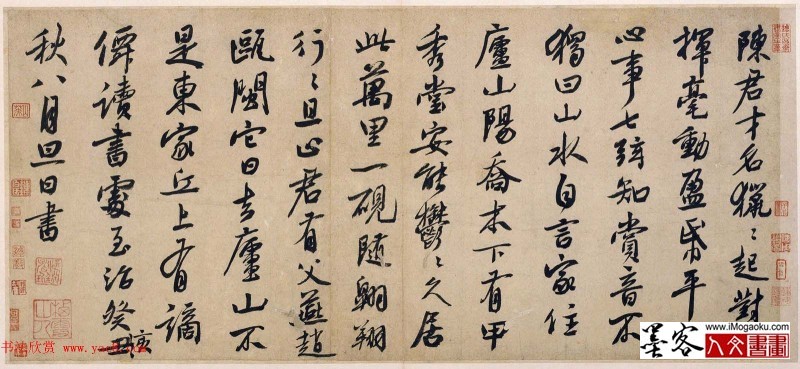 陳君才名獵〻起對
揮毫動盈帋平
心事七弦知賞音不
獨曰山水自言家住
廬山陽喬木下有甲
秀堂安能鬱〻久居
此萬里一硯隨翱翔
行〻且止君有父燕趙
甌閩它日去廬山不
是東家丘上有謫
僊讀書處至治癸丑亥
秋八月旦日書
www.iMogaoku.com
墨客
人文書畫
书法欣赏